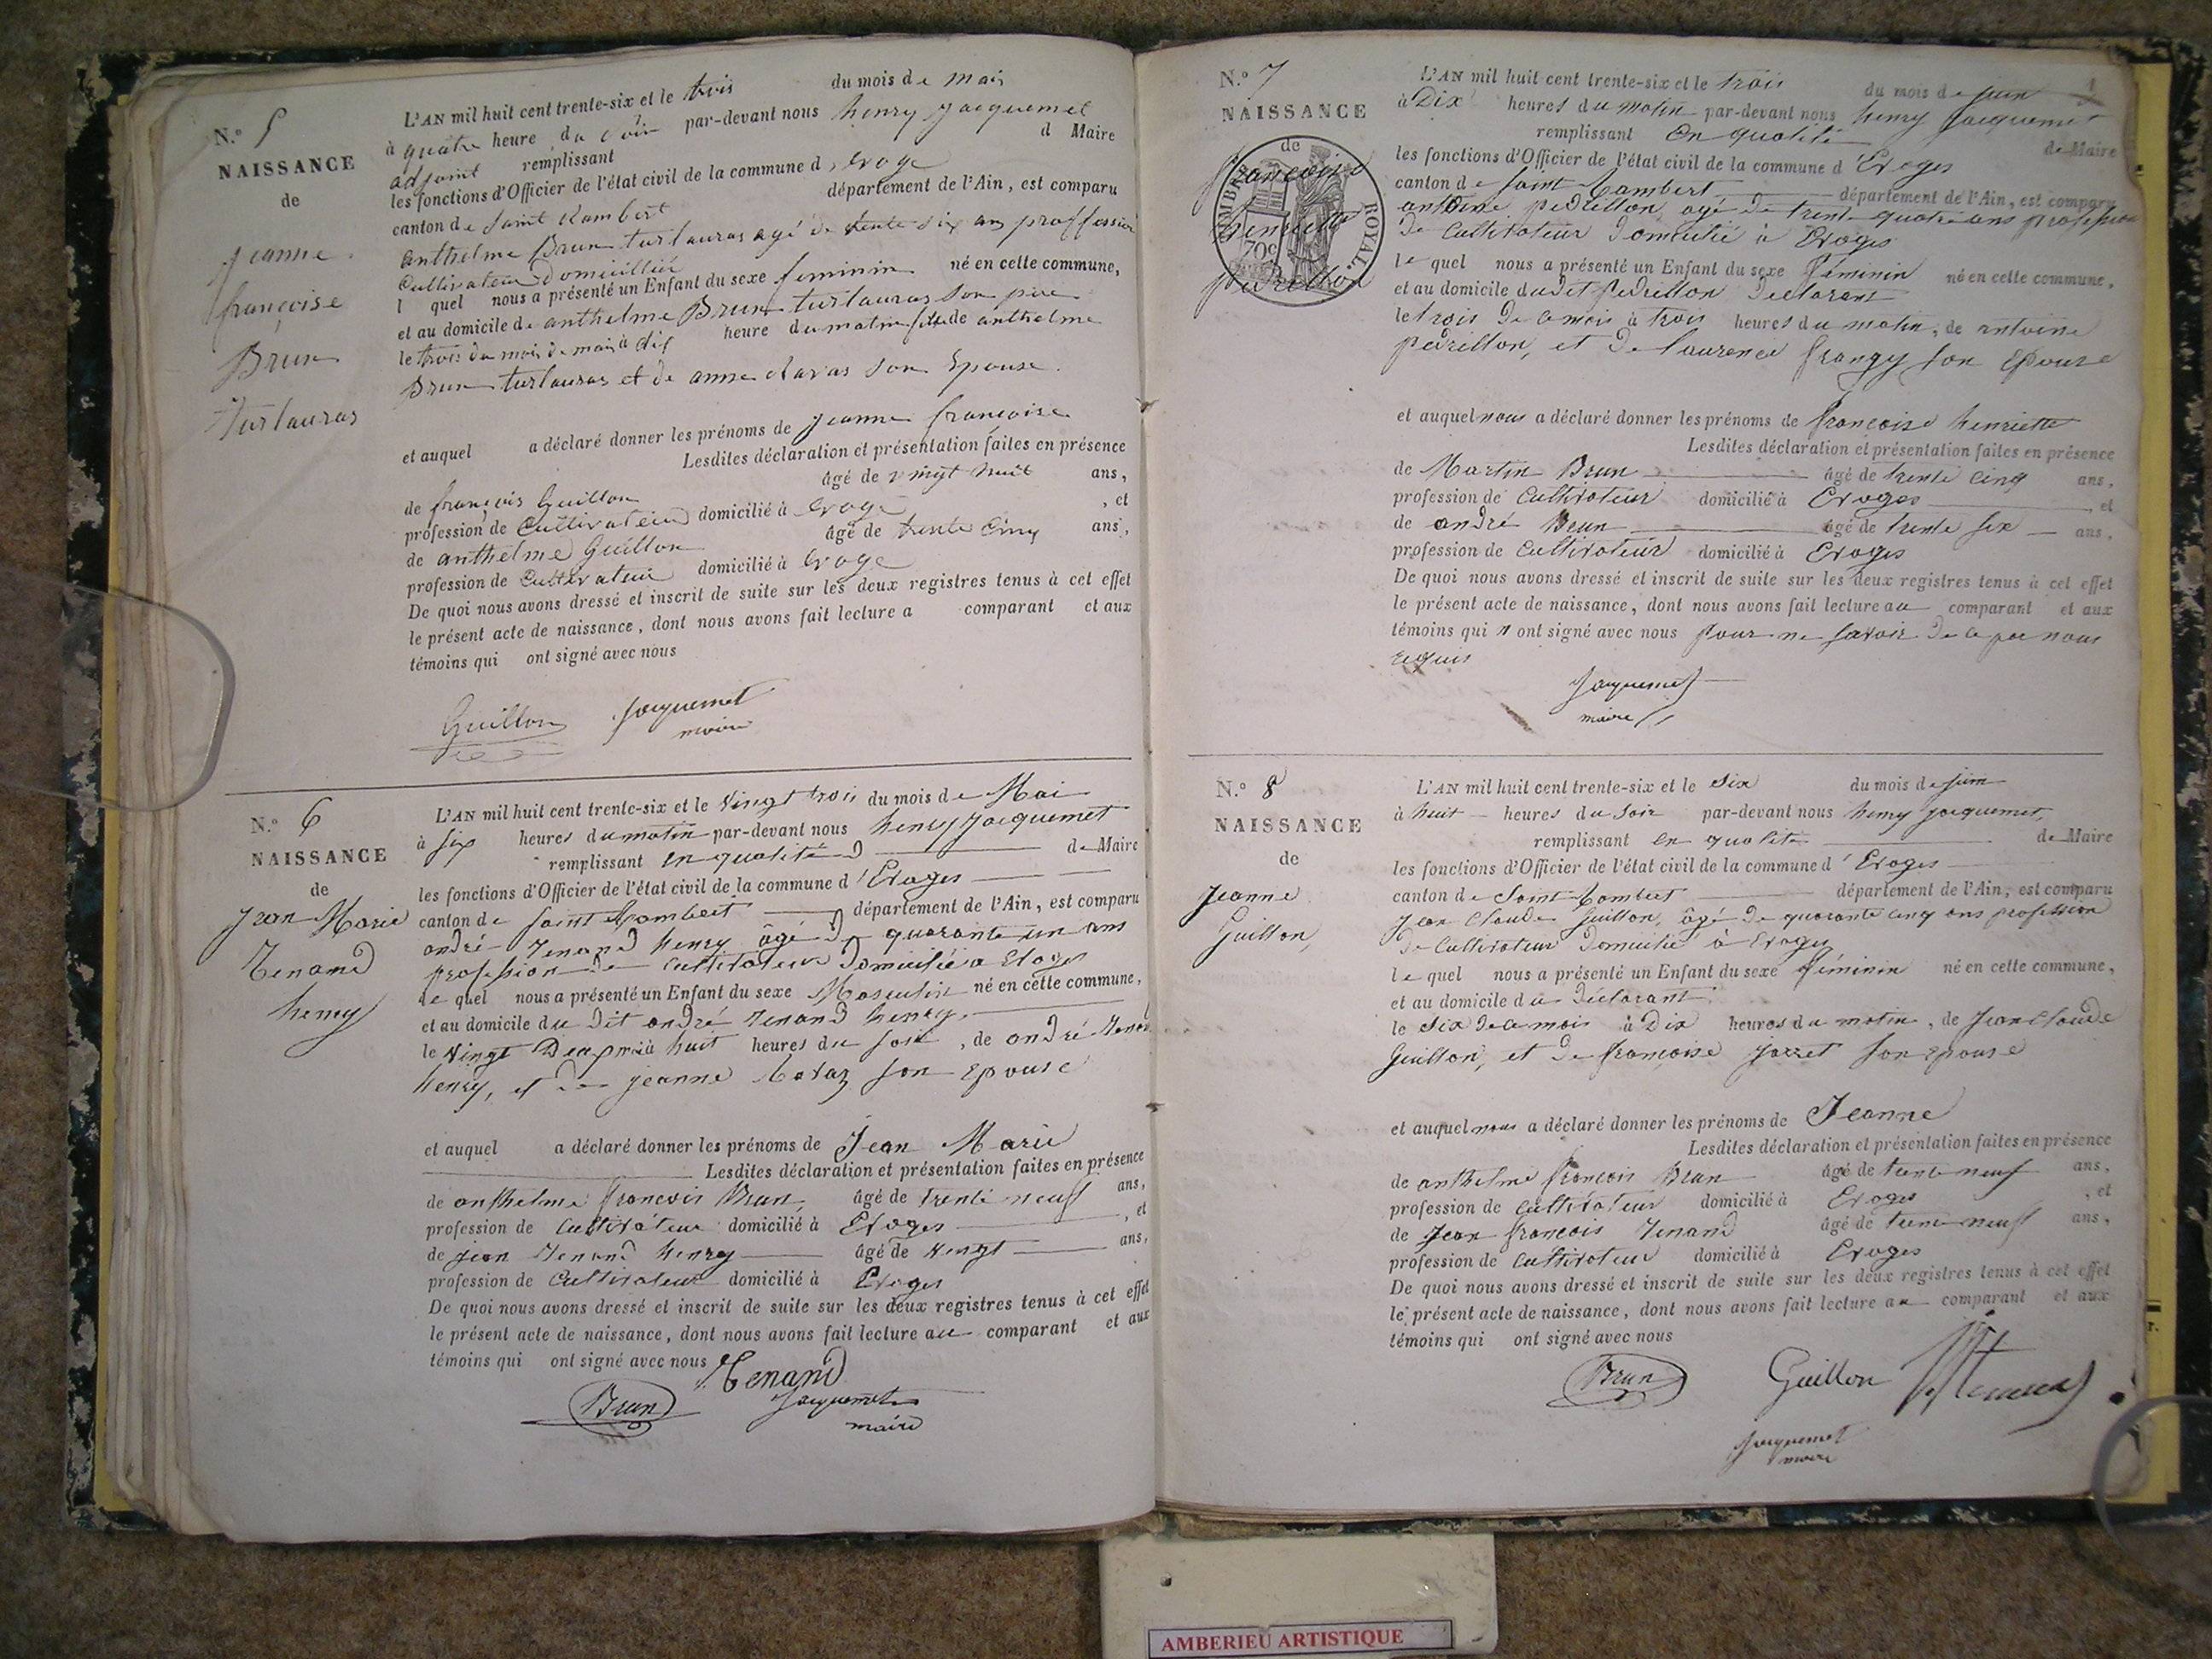 N.º 5
NAISSANCE
de
Jeanne
françoise
Brun
Turlauras
L'AN mil huit cent trente-six et le trois du mois de mai
à quatre heure du soir par-devant nous henry Jacquemet
adjoint remplissant d Maire
les fonctions d'Officier de l'état civil de la commune d'Evoge
canton de Saint Rambert département de l'Ain, est comparu
anthelme Brun turlauras agé de trente six ans proffession
Cultivateur domicillié
l quel nous a présenté un Enfant du sexe feminin né en cette commune,
et au domicile de anthelme Brun turlauras son père
le trois du mois de mai à dix heure du matin fille de anthelme
Brun turlauras et de anne son Epouse.
et auquel a déclaré donner les prénoms de Jeanne françoise
Lesdites déclaration et présentation faites en présence
de françois Guillon âgé de vingt huit ans,
profession de Cultivateur domicilié à Evoge , et
de anthelme Guillon âgé de trente cinq ans,
profession de Cultivateur domicilié à Evoge
De quoi nous avons dressé et inscrit de suite sur les deux registres tenus à cet effet
le présent acte de naissance, dont nous avons fait lecture a comparant et aux
témoins qui ont signé avec nous
Guillon Jacquemet
maire
N.º 6
NAISSANCE
de
Jean Marie
Tenand
henry
L'AN mil huit cent trente-six et le Vingt trois du mois de Mai
à six heures du matin par-devant nous henry Jacquemet
remplissant en qualité de Maire
les fonctions d'Officier de l'état civil de la commune d'Evoges
canton de Saint Rambert département de l'Ain, est comparu
andré Tenand henry âgé de quarante un ans
profession de Cultivateur Domicilié a Evoges
le quel nous a présenté un Enfant du sexe Masculin né en cette commune,
et au domicile du dit andré Tenand henry
le Vingt Deux mai à huit heures du soir , de andré Tenand
henry, et de jeanne son Epouse
et auquel a déclaré donner les prénoms de Jean Marie
Lesdites déclaration et présentation faites en présence
de anthelme francois Brun, âgé de trente neuf ans,
profession de Cultivateur domicilié à Evoges , et
de jean Tenand henry âgé de Vingt ans,
profession de Cultivateur domicilié à Evoges
De quoi nous avons dressé et inscrit de suite sur les deux registres tenus à cet effet
le présent acte de naissance, dont nous avons fait lecture au comparant et aux
témoins qui ont signé avec nous Tenand
Brun Jacquemet
maire
N.º 7
NAISSANCE
de
TIMBRE ROYAL.
70c
francoise
henriette
pedrillon
L'AN mil huit cent trente-six et le trois du mois de juin
à Dix heures du matin par-devant nous henry Jacquemet
remplissant en qualité de Maire
les fonctions d'Officier de l'état civil de la commune d'Evoges
canton de Saint Rambert département de l'Ain, est comparu
antoine pedrillon, agé de trente quatre ans profession
de Cultivateur Domicilié à Evoges
le quel nous a présenté un Enfant du sexe féminin né en cette commune,
et au domicile dudit pedrillon Déclarant
le trois De ce mois à trois heures du matin, de antoine
pedrillon, et De laurence frangy son Epouse
et auquel nous a déclaré donner les prénoms de françoise henriette
Lesdites déclaration et présentation faites en présence
de Martin Brun âgé de trente cinq ans,
profession de Cultivateur domicilié à Evoges , et
de andré Brun âgé de trente six ans,
profession de Cultivateur domicilié à Evoges
De quoi nous avons dressé et inscrit de suite sur les deux registres tenus à cet effet
le présent acte de naissance, dont nous avons fait lecture au comparant et aux
témoins qui n ont signé avec nous pour ne savoir de ce par nous
requis
Jacquemet
maire
N.º 8
NAISSANCE
de
Jeanne
Guillon,
L'AN mil huit cent trente-six et le Six du mois de juin
à huit heures du Soir par-devant nous henry jacquemet,
remplissant en qualité de Maire
les fonctions d'Officier de l'état civil de la commune d'Evoges
canton de Saint Rambert département de l'Ain, est comparu
jean Claude Guillon, âgé de quarante cinq ans profession
de Cultivateur Domicilié à Evoges
le quel nous a présenté un Enfant du sexe féminin né en cette commune,
et au domicile du Déclarant
le Six de ce mois à Dix heures du matin, de Jean Claude
Guillon, et de françoise jarret son epouse
et auquel nous a déclaré donner les prénoms de Jeanne
Lesdites déclaration et présentation faites en présence
de anthelme françois Brun âgé de trente neuf ans,
profession de Cultivateur domicilié à Evoges , et
de Jean françois Tenand âgé de trente neuf ans,
profession de Cultivateur domicilié à Evoges
De quoi nous avons dressé et inscrit de suite sur les deux registres tenus à cet effet
le présent acte de naissance, dont nous avons fait lecture au comparant et aux
témoins qui ont signé avec nous
Brun Guillon
Jacquemet
maire
AMBERIEU ARTISTIQUE